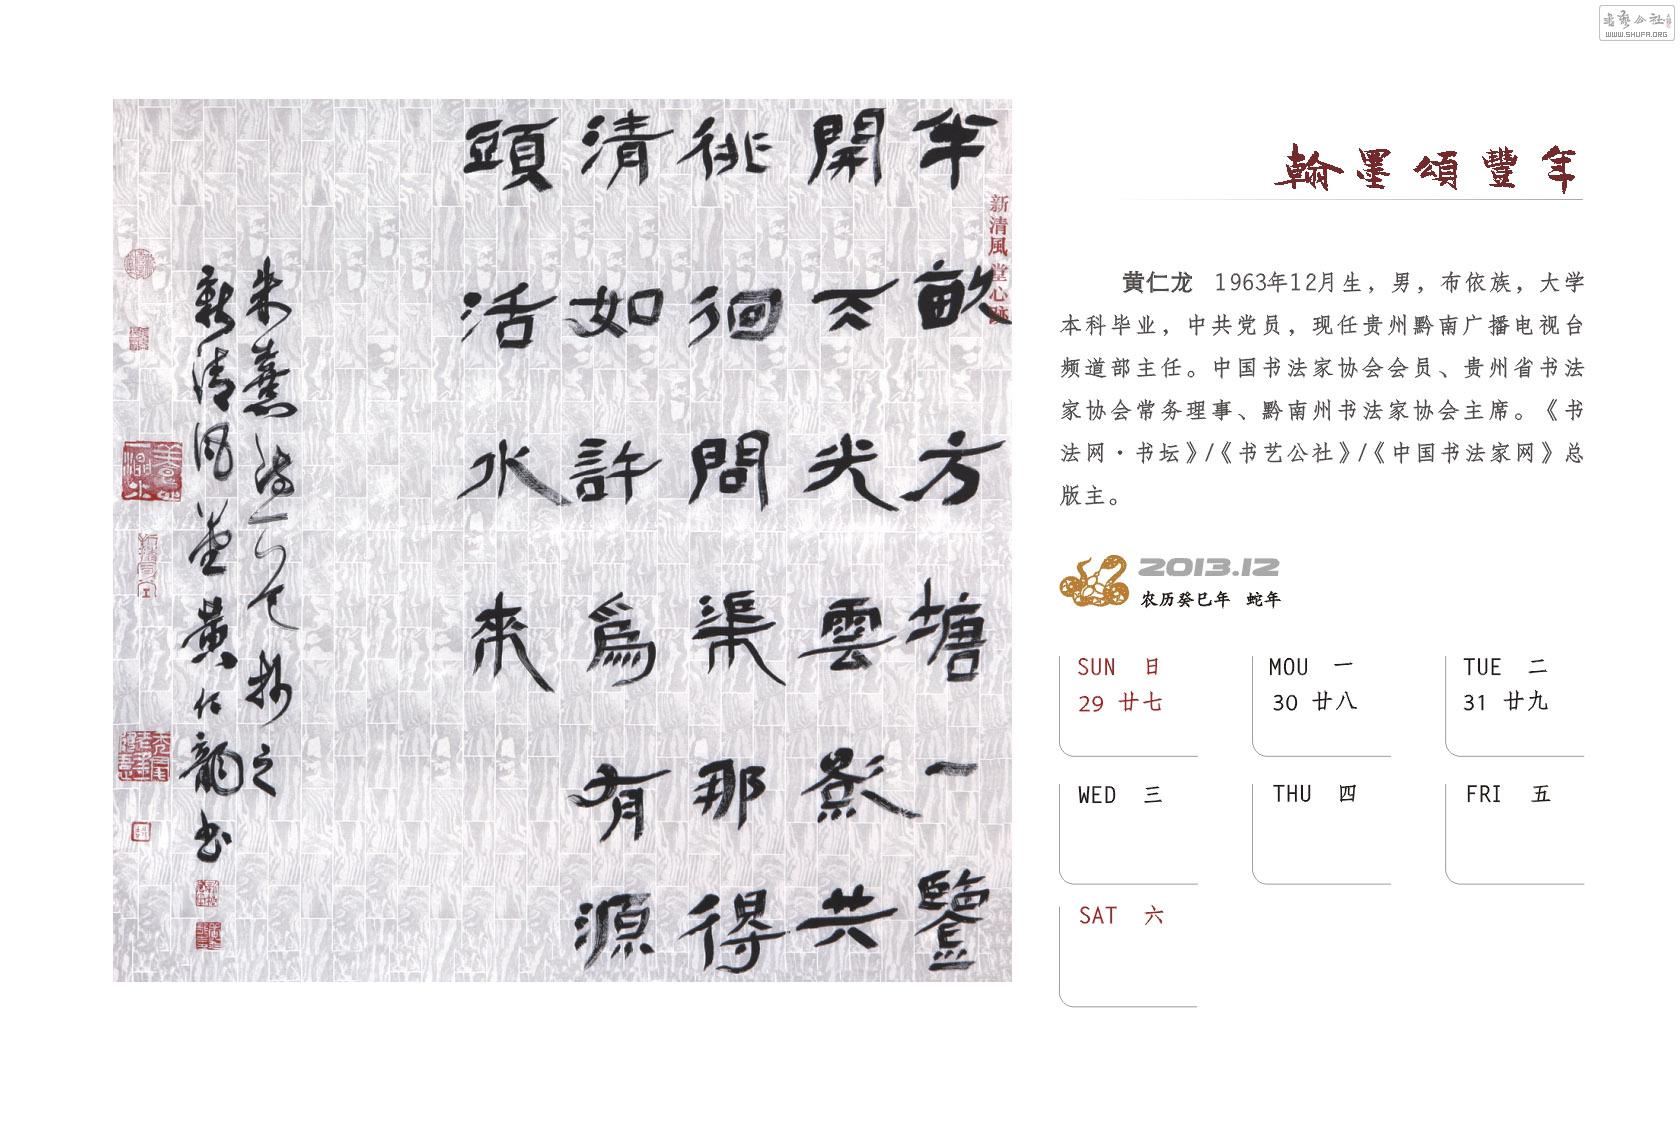 書藝公社
WWW.SHUFA.ORG
翰墨頌豐年
半畝方塘一鑒
開天光雲影共
徘徊問渠那得
清如許爲有源
頭活水來
朱熹詩一抄之
新清風堂黄仁龍書
新清風堂心跡
黄仁龙 1963年12月生，男，布依族，大学
本科毕业，中共党员，现任贵州黔南广播电视台
频道部主任。中国书法家协会会员、贵州省书法
家协会常务理事、黔南州书法家协会主席。《书
法网·书坛》/《书艺公社》/《中国书法家网》总
版主。
2013.12
农历癸巳年 蛇年
SUN 日
29 廿七
MOU 一
30 廿八
TUE 二
31 廿九
WED 三
THU 四
FRI 五
SAT 六